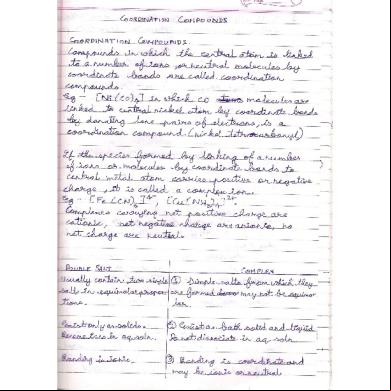 COORDINATION COMPOUNDS
COORDINATION COMPOUNDS
Compounds in which the central atom is linked
to a number of ions or neutral molecules by
coordinate bonds are called coordination
compounds.
Eg - [Ni(CO)4] in which CO molecules are
linked to central nickel atom by coordinate bonds
by donating lone pairs of electrons, is a
coordination compound. (nickel tetracarbonyl)
If the species formed by linking of a number
of ions or molecules by coordinate bonds to
central metal atom carries positive or negative
charge, it is called a complex ion.
Eg - [Fe(CN)6]4-, [Cu(NH3)4]2+
Complexes carrying net positive charge are
cationic, net negative charge are anionic, no
net charge are neutral.
DOUBLE SALT
COMPLEX
Usually contain two simple
salts in equimolar propor
tions.
(1) Simple salts from which they
are formed may not be equimo
lar.
Exist only as solids.
in aq soln.
(2) Exist as both solid and liquid
Do not dissociate in aq soln.
Bonding is ionic.
(3) Bonding is coordinate and
may be ionic or neutral